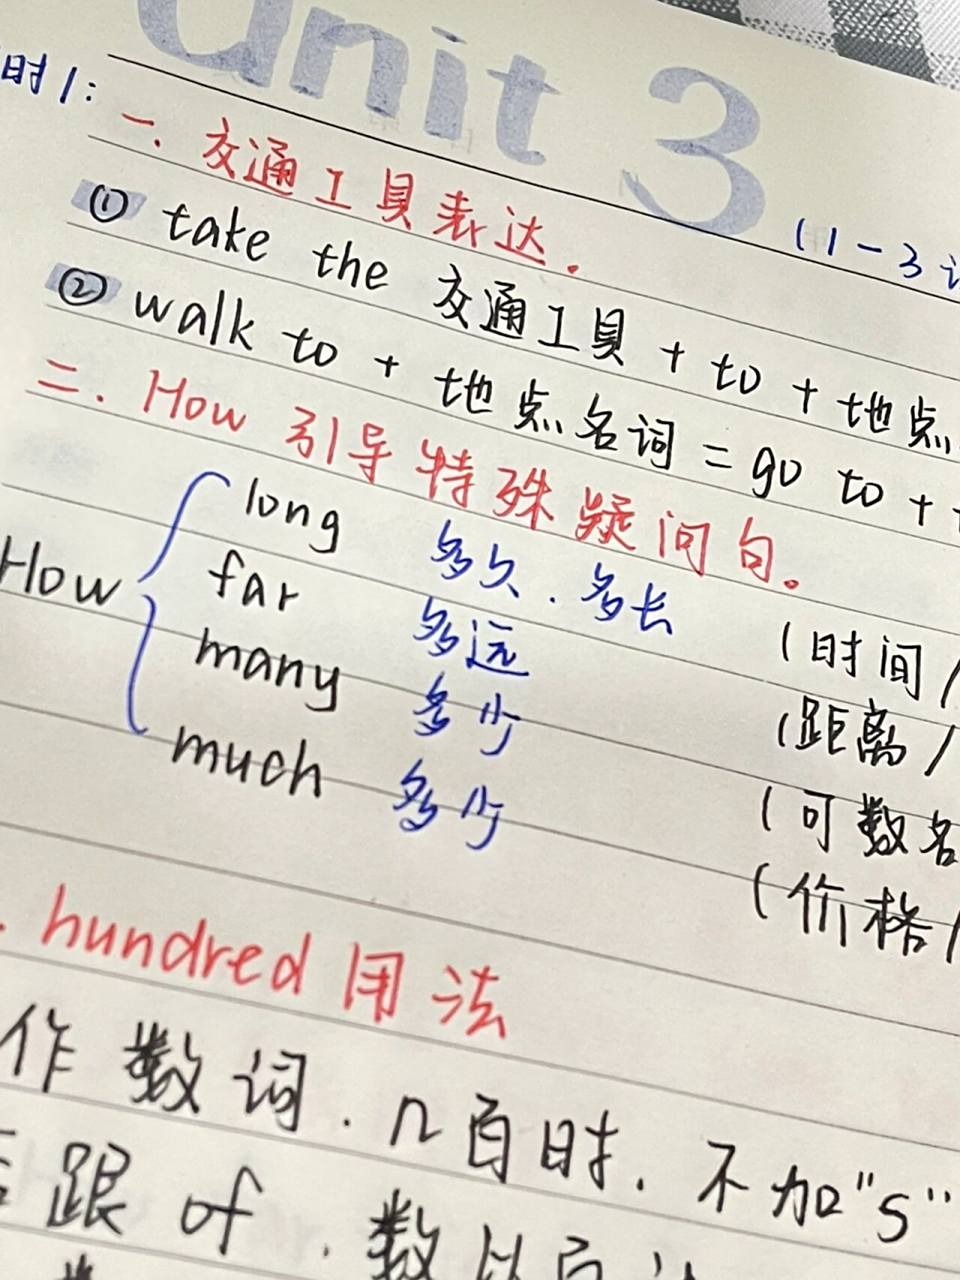 Unit 3
时1:
(1-3
一. 交通工具表达.
① take the 交通工具 + to + 地点
② walk to + 地点名词 = go to +
二. How 引导特殊疑问句。
How
long 多久. 多长 (时间/
far 多远 (距离/
many 多少 (可数名
much 多少 (价格/
. hundred 用法
作数词. n百时. 不加"s"
跟 of. 数以百